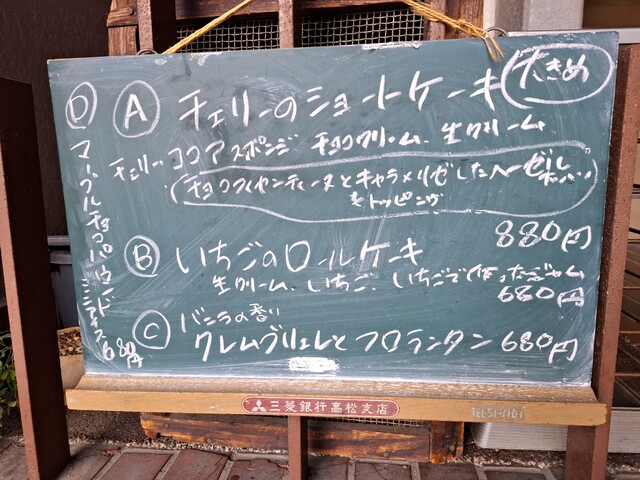 Ⓐ チェリーのショートケーキ 大きめ
チェリー ココアスポンジ チョコクリーム、生クリーム
(チョコフィヤンティーヌとキャラメリゼしたヘーゼル
をトッピング
880円
Ⓑ いちごのロールケーキ
生クリーム、いちご、いちごで作ったジャム
680円
Ⓒ バニラの香り
クレムブリュレとフロランタン 680円
Ⓓ マーブルチョコパウンド
ミニアイス
680円
三菱銀行高松支店
TEL 51-4101